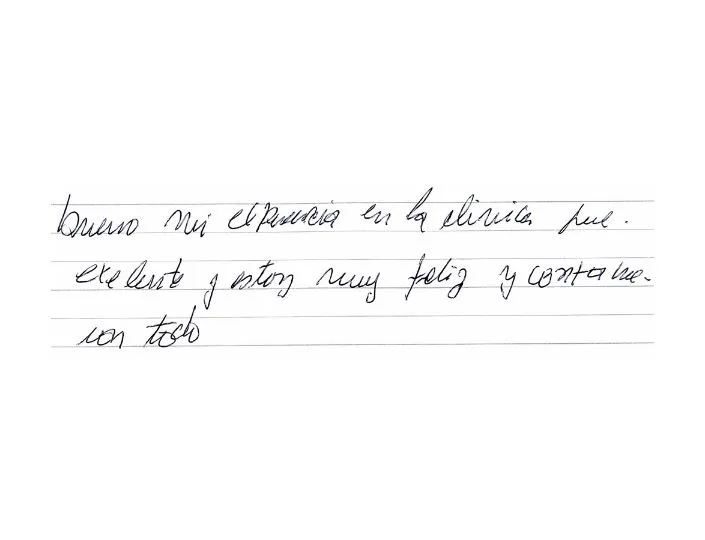 bueno mi experiencia en la clinica fue.
exelente y estoy muy feliz y
con todo